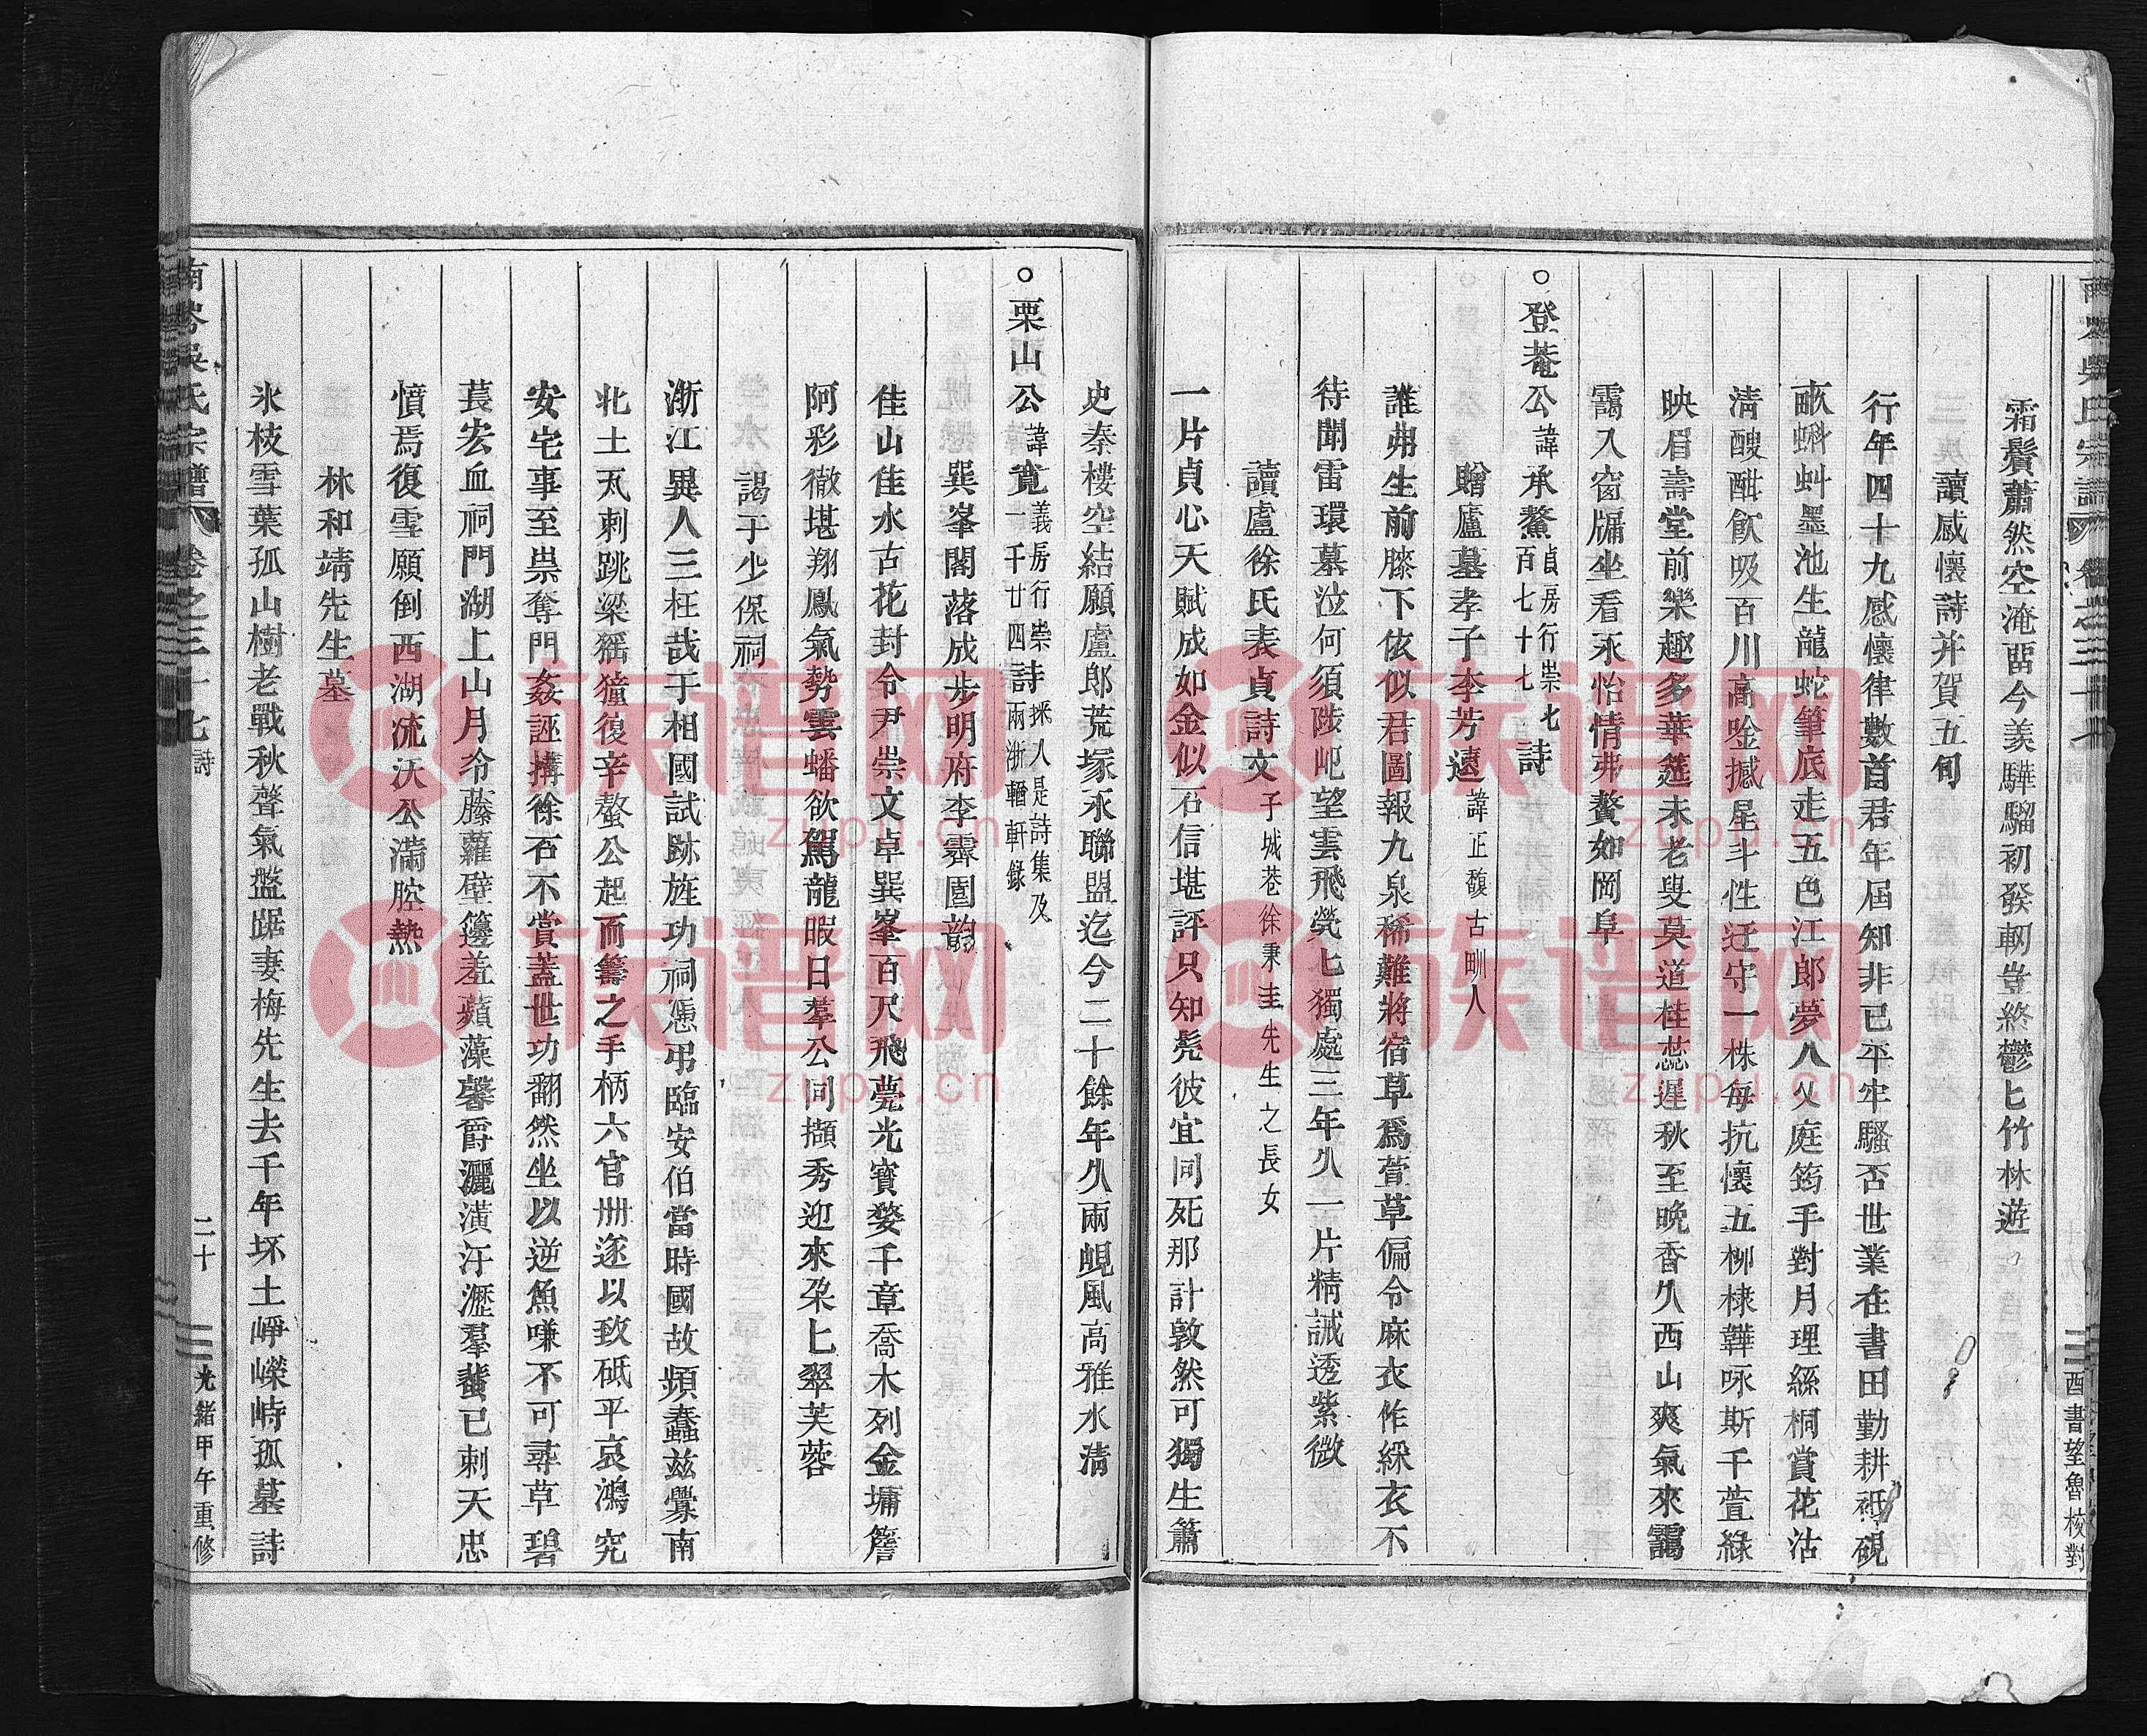 霜鬢蕭然空淹畱今羨驊騮初發軔豈終鬱匕竹林遊
讀感懷詩并賀五旬
行年四十九感懷律數首君年屆知非已平牢騷否世業在書田勤耕祗硯
畝蝌蚪墨池生龍蛇筆底走五色江郎夢八乂庭筠手對月理絲桐賞花沽
清醙酣飲吸百川高唫撼星斗性迂守一株每抗懷五柳棣韡咏斯千萱綠
映眉壽堂前樂趣多華筵未老叟莫道桂蕊遲秋至晚香久西山爽氣來靄
靄入窗牖坐看永怡情弗贅如岡阜
○登菴公諱承鰲貞房行崇七百七十七詩
贈廬墓孝子李芳遠諱正馥古甽人
誰弗生前膝下依似君圖報九泉稀難將宿草爲萱草偏令麻衣作綵衣不
待聞雷環墓泣何須陟屺望雲飛煢匕獨處三年久一片精誠透紫微
讀盧徐氏表貞詩文子城巷徐秉圭先生之長女
一片貞心天賦成如金似石信堪評只知髡彼宜同死那計敦然可獨生簫
史秦樓空結願盧郎荒塚永聯盟迄今二十餘年久兩峴風高雅水清
○栗山公諱寬義房行崇一千廿四詩採人是詩集及兩浙輶軒錄
巽峯閣落成步明府李霽園韵
佳山佳水古花封令尹崇文卓巽峯百尺飛甍光寶婺千章喬木列金墉簷
阿彩徹堪翔鳳氣勢雲蟠欲駕龍暇日羣公同擷秀迎來朶匕翠芙蓉
謁于少保祠
浙江異人三枉哉于相國試跡旌功祠憑弔臨安伯當時國故頻蠢兹釁南
北土瓦刺跳梁猺獞復辛螯公起而籌之手柄六官卌遂以致砥平哀鴻究
安宅事至祟奪門姦誣搆徐石不賞蓋世功翻然坐以逆魚嗛不可尋草碧
萇宏血祠門湖上山月令藤蘿壁籩羞蘋藻馨爵灑潢汙瀝羣蜚已刺天忠
憤焉復雪願倒西湖流沃公滿腔熱
林和靖先生墓
氷枝雪葉孤山樹老戰秋聲氣盤踞妻梅先生去千年坏土崢嶸峙孤墓詩
南岑吳氏宗譜 卷之三十七 詩 二十 光緒甲午重修
酉書望魯校對